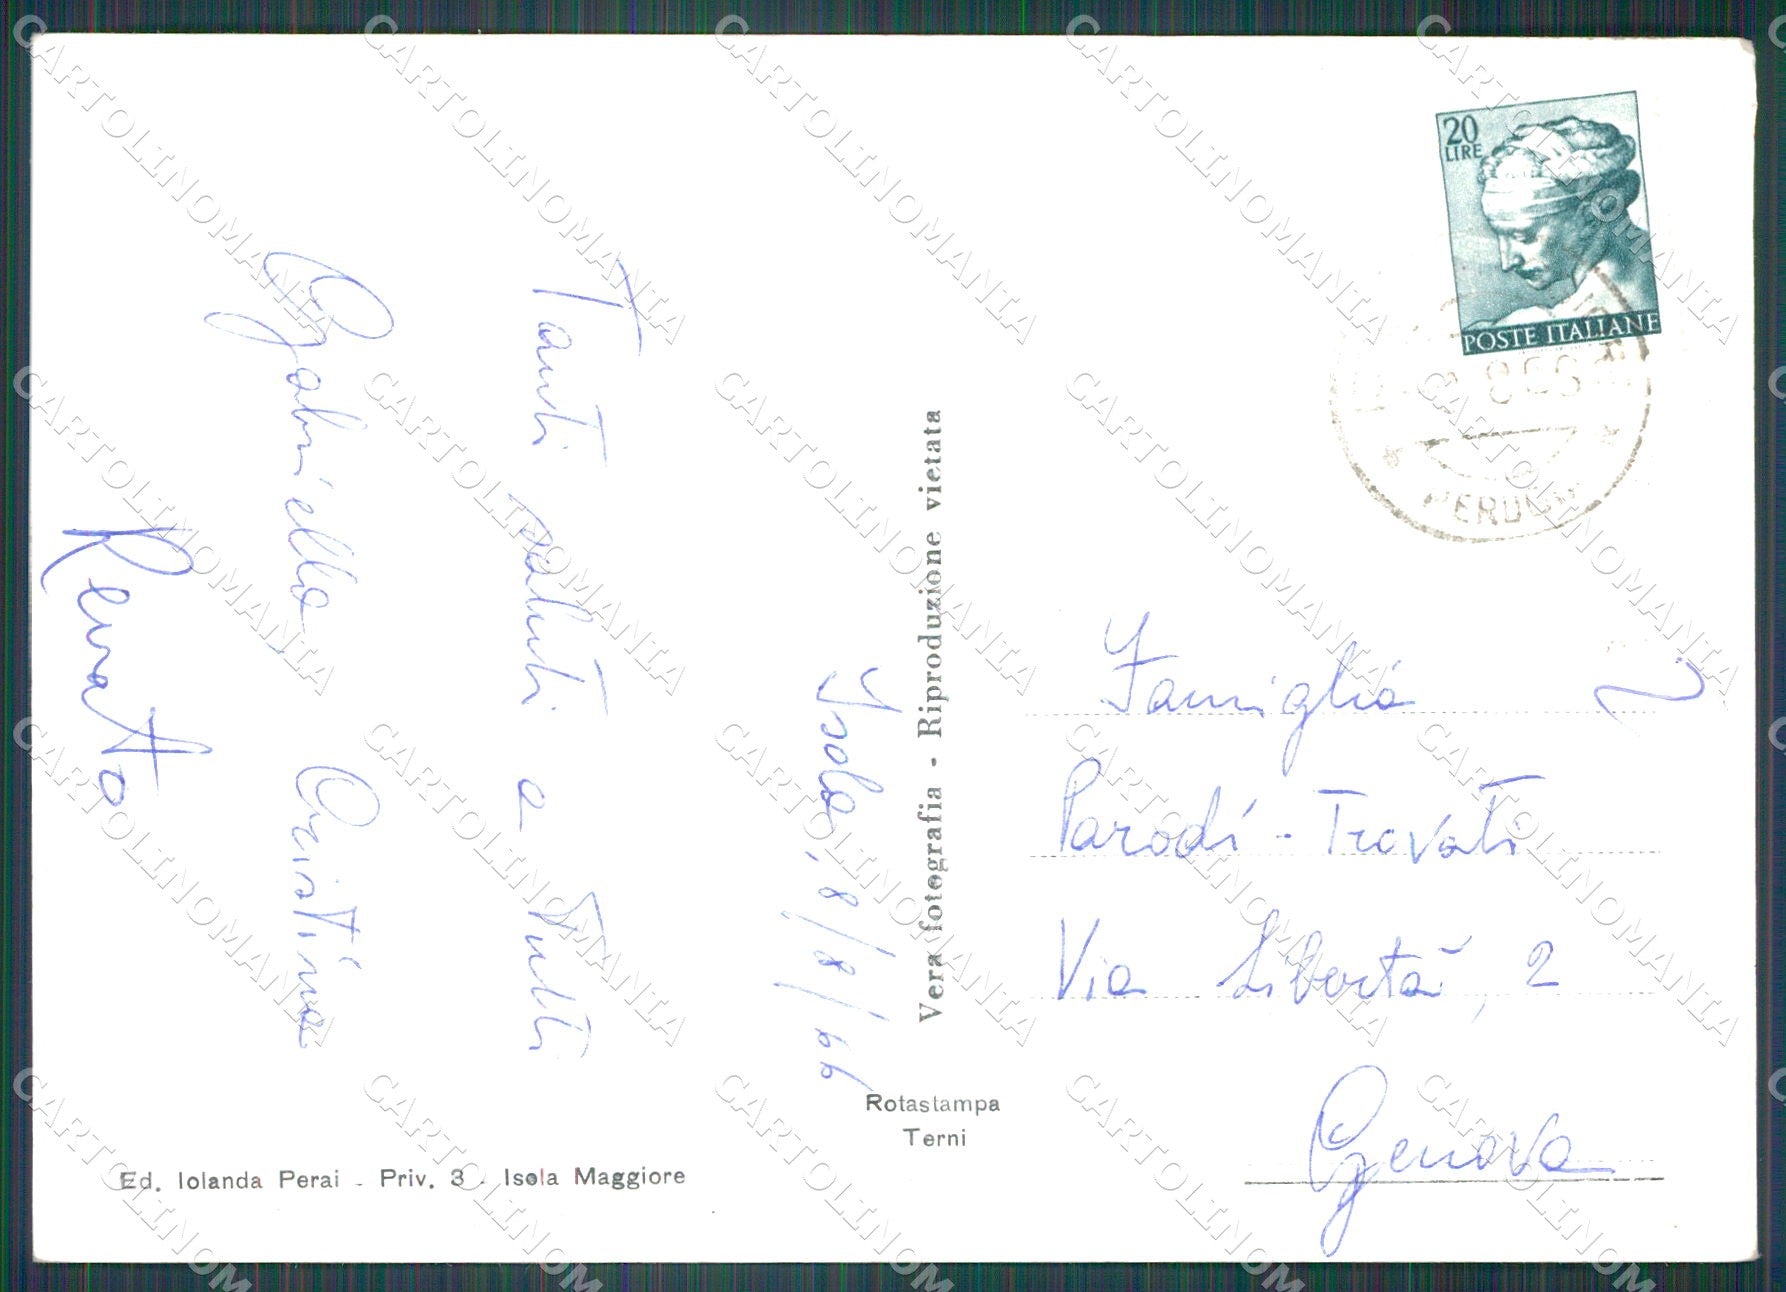 20
LIRE
POSTE ITALIANE
Isola, 8/8/66
Tanti saluti a Tutti
Gabriella Cristina
Renato
Vera fotografia - Riproduzione vietata
Famiglia
Parodi - Trovati
Via Libertà, 2
Genova
Rotastampa
Terni
Ed. Iolanda Perai - Priv. 3 - Isola Maggiore
CARTOLINOMANIA